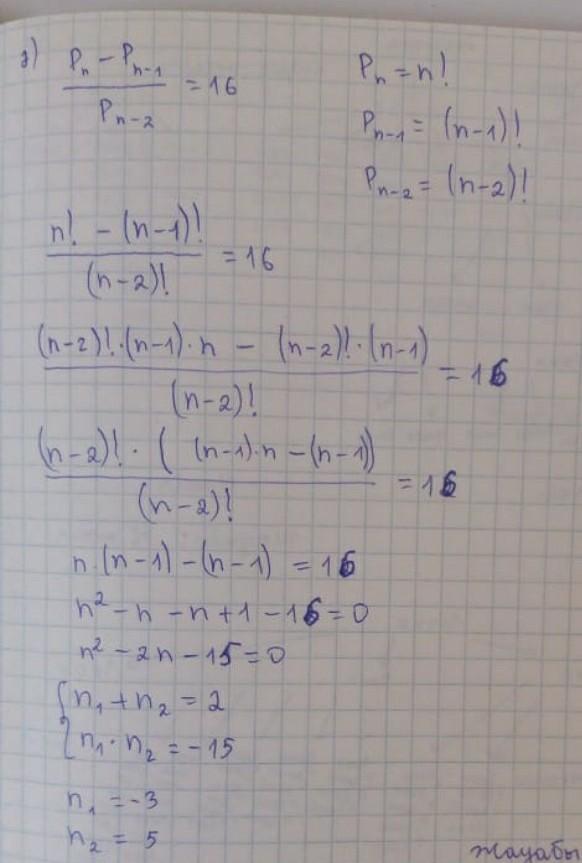 з) (Pₙ − Pₙ₋₁) / Pₙ₋₂ = 16
Pₙ = n!
Pₙ₋₁ = (n-1)!
Pₙ₋₂ = (n-2)!
(n! − (n-1)!) / (n-2)! = 16
((n-2)!·(n-1)·n − (n-2)!·(n-1)) / (n-2)! = 16
((n-2)!·((n-1)·n − (n-1))) / (n-2)! = 16
n·(n-1) − (n-1) = 16
n² − n − n + 1 − 16 = 0
n² − 2n − 15 = 0
{ n₁ + n₂ = 2
n₁ · n₂ = −15
n₁ = −3
n₂ = 5
Жауабы